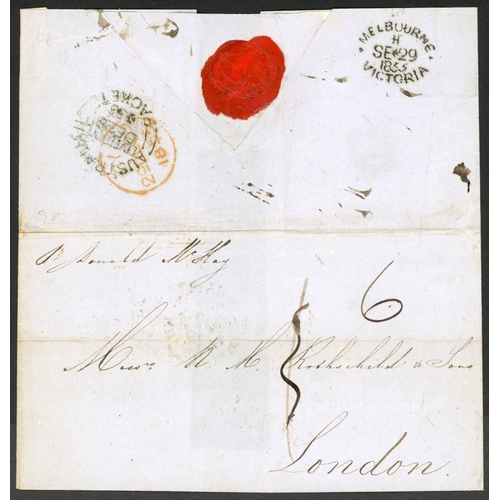 MELBOURNE
H
SE 29
1855
VICTORIA
AUSTRALIAN PACKET
pr Donald McKay
6
Messrs N. M. Rothschild & Sons
London.